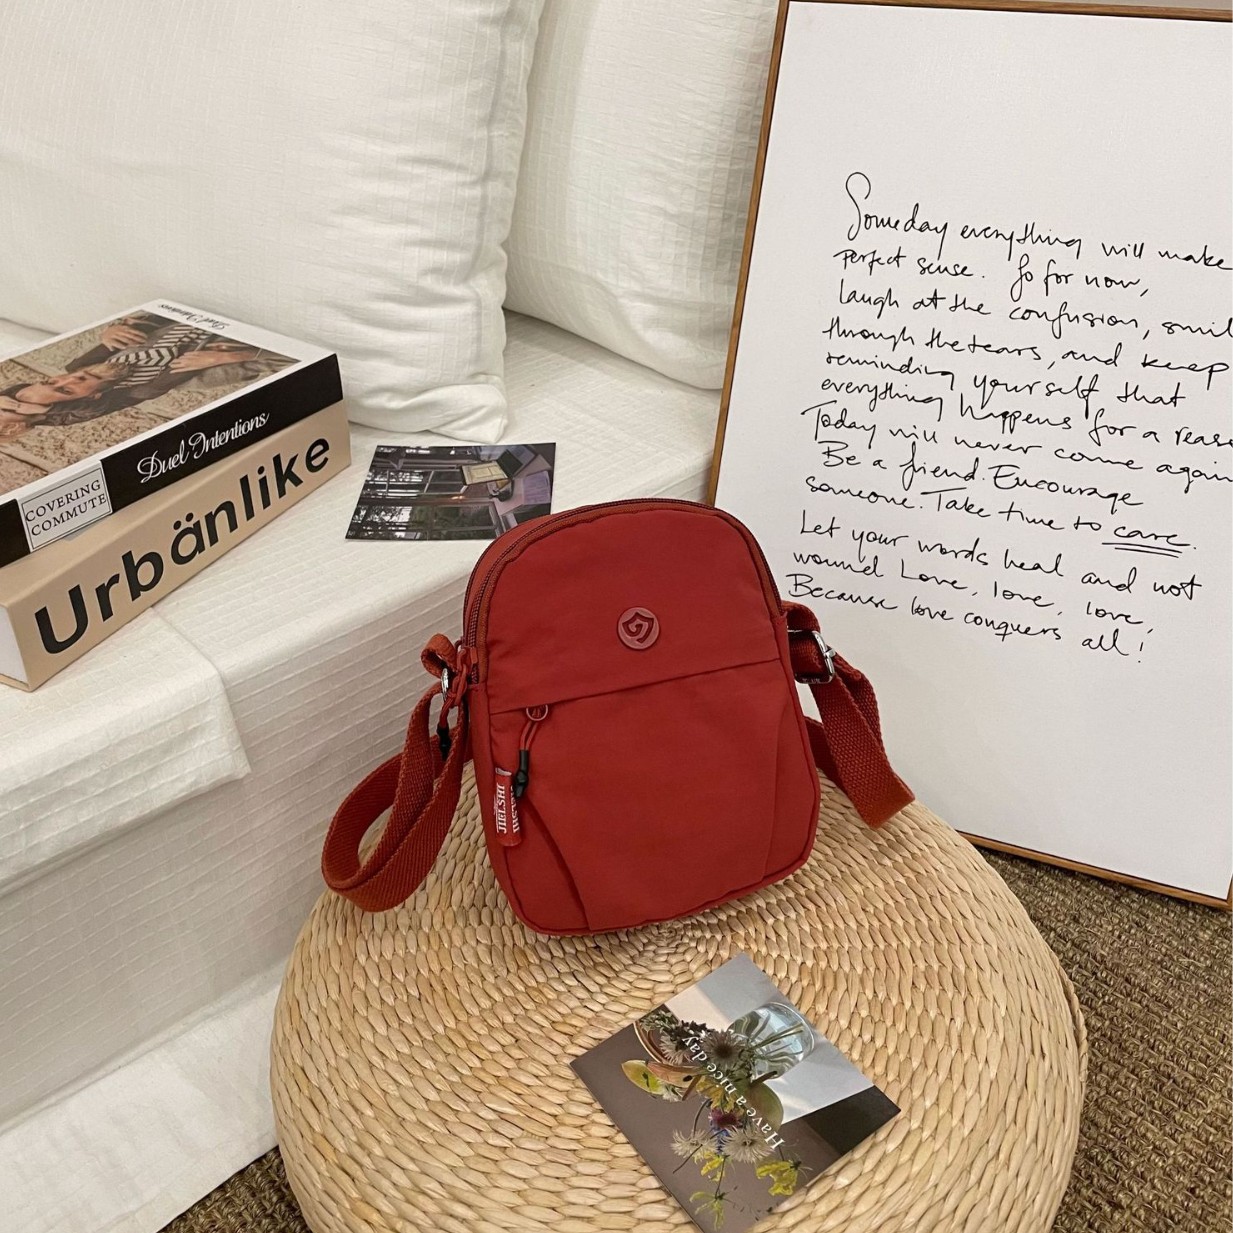 Someday everything will make
perfect sense. So for now,
laugh at the confusion, smil
through the tears, and keep
reminding yourself that
everything happens for a reas
Today will never come again
Be a friend. Encourage
someone. Take time to care.
Let your words heal and not
wound Love, love, love,
Because love conquers all!
Duel Intentions
Duel Intentions
COVERING
COMMUTE
Urbänlike
JIELSHI
Have a nice day